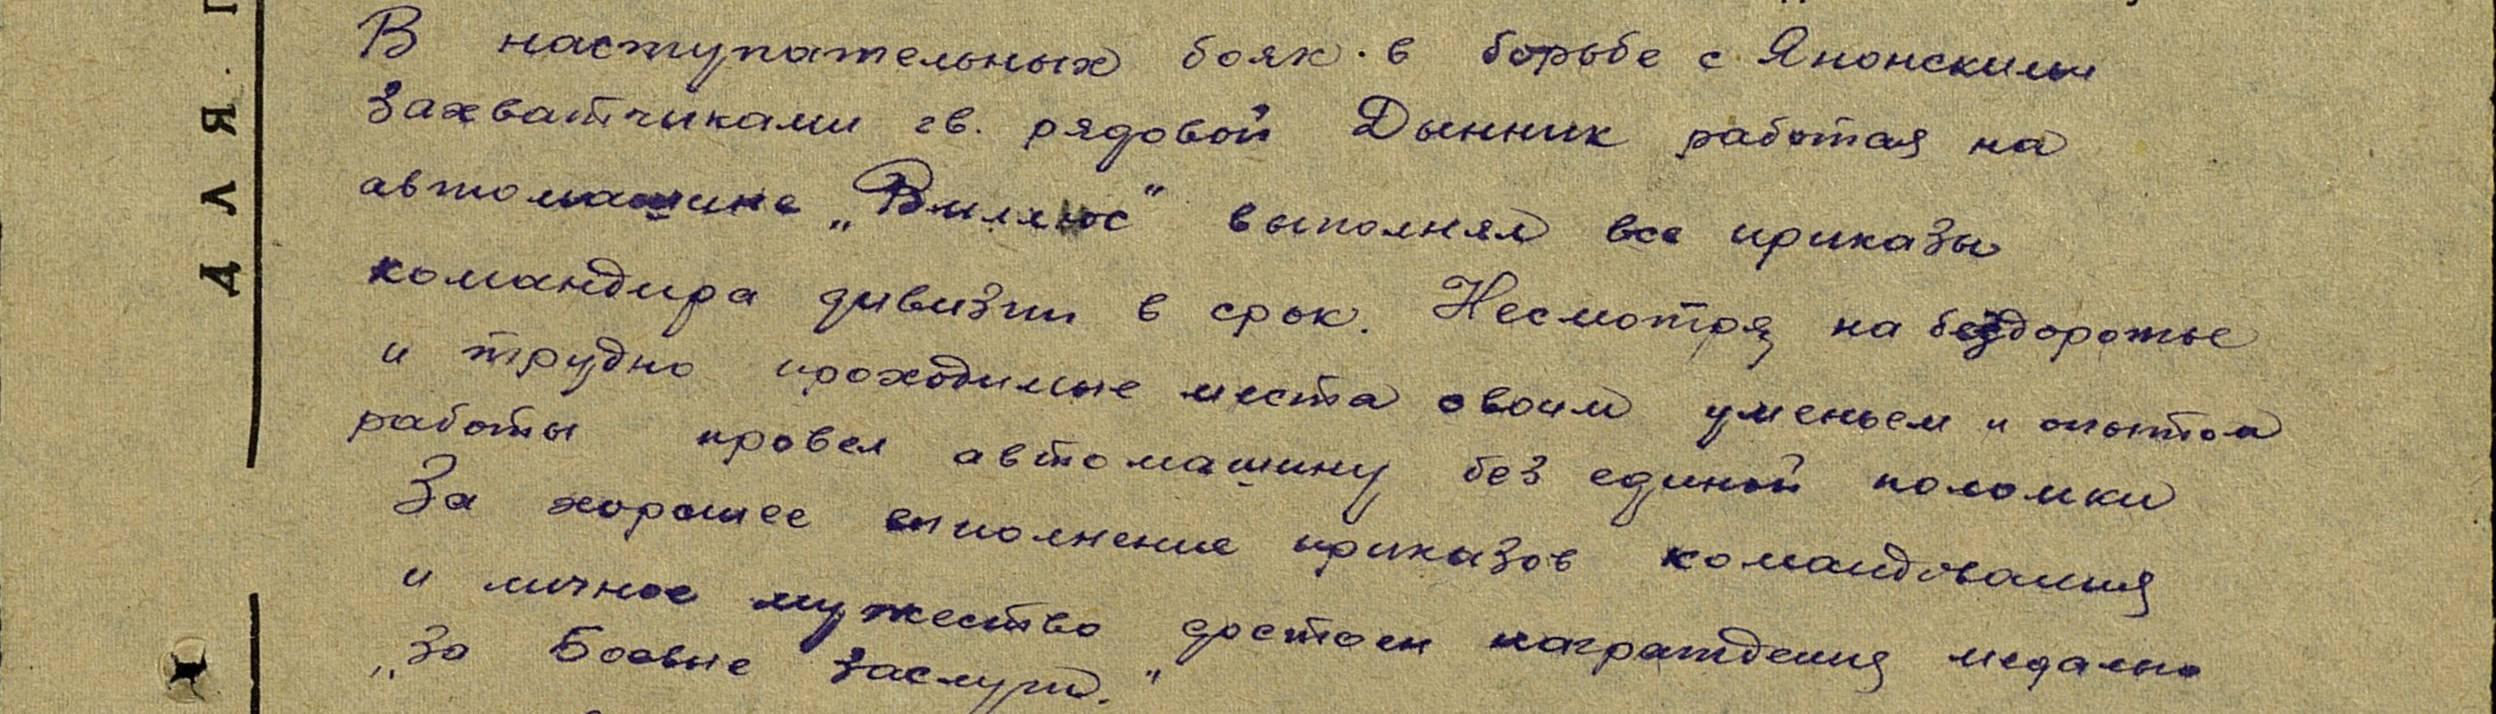 В наступательных боях в борьбе с Японскими
захватчиками гв. рядовой Дынник работая на
автомашине „Виллюс" выполнял все приказы
командира дивизии в срок. Несмотря на бездорожье
и трудно проходимые места своим уменьем и опытом
работы провел автомашину без единой поломки
За хорошее выполнение приказов командования
и личное мужество достоен награждения медалью
„За Боевые заслуги."
ДЛЯ